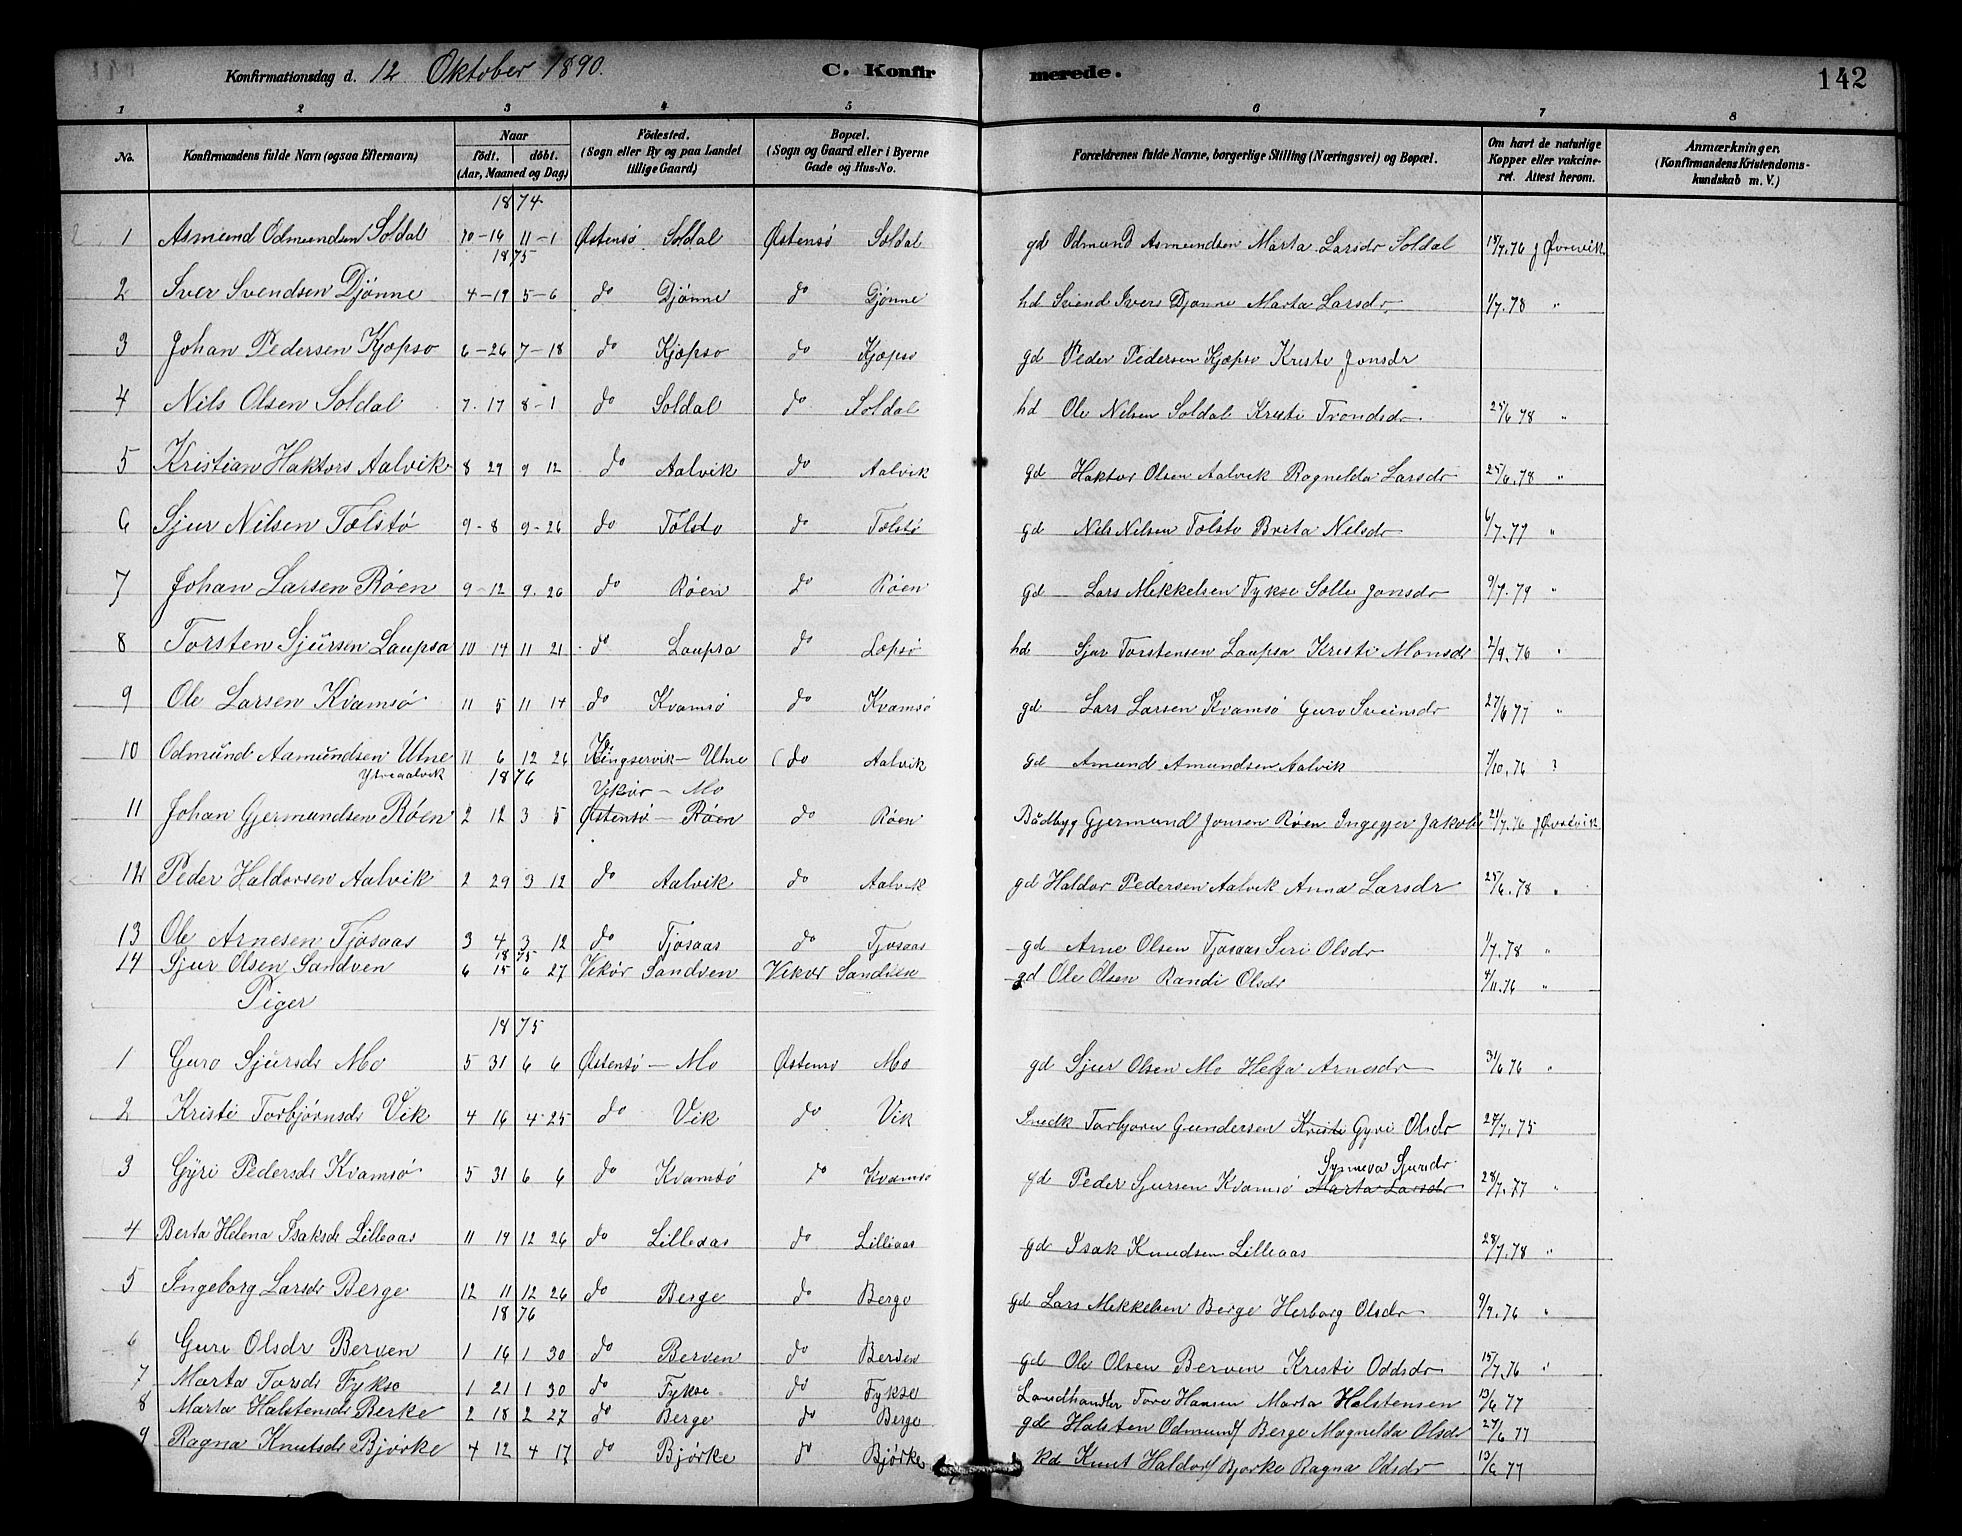 Konfirmationsdag d. 12 Oktober 1890. C. Konfirmerede. 142
1 2 3 4 5 6 7 8
No. Konfirmandens fulde Navn (ogsaa Efternavn) Naar födt. döbt. (Aar, Maaned og Dag) Födested. (Sogn eller By og paa Landet tillige Gaard) Bopæl. (Sogn og Gaard eller i Byerne Gade og Hus-No. Forældrenes fulde Navne, borgerlige Stilling (Næringsvei) og Bopæl. Om havt de naturlige Kopper eller vakcineret. Attest herom. Anmærkninger. (Konfirmandens Kristendomskundskab m. V.)
1874
1 Asmund Odmundsen Soldal 10-16 11-1 Østensø Soldal Østensø Soldal gd Odmund Asmundsen Marta Larsdr Soldal 18/7.76 J Øvrevik
1875
2 Iver Svendsen Djønne 4-19 5-6 do Djønne do Djønne hd Svend Ivers Djønne Marta Larsdr 1/7.78 "
3 Johan Pedersen Kjøpso 6-26 7-18 do Kjøpso do Kjøpsø gd Peder Pedersen Kjøpsø Kristi Jonsdr
4 Nils Olsen Soldal 7.17 8-1 do Soldal do Soldal hd Ole Nilsen Soldal Kristi Trondsdr 25/6 78 "
5 Kristian Haktors Aalvik 8 29 9 12 do Aalvik do Aalvik gd Haktor Olsen Aalvik Ragnelda Larsdr 25/6.78 "
6 Sjur Nilsen Tolstø 9-8 9-26 do Tolsto do Tolstø gd Nels Nilsen Tolsto Brita Nilsdr 6/7.77 "
7 Johan Larsen Røen 9-12 9.26 do Røen do Røen gd Lars Mikkelsen Fykse Jonsdr 9/7.79 "
8 Torsten Sjursen Laupsa 10 14 11 21 do Laupsa do Lopsø hd Sjur Torstensen Laupsa Kristi Monsdr 2/9.76 "
9 Ole Larsen Kvamsø 11 5 11 14 do Kvamsø do Kvamsø gd Lars Larsen Kvamsø Guro Sveinsdr 27/6 77 "
10 Odmund Aamundsen Utne 11 6 12 26 Kingservik - Utne do Aalvik gd Amund Amundsen Aalvik 7/10.76 "
Ytreaalvik 1876 Vikør - Mo
11 Johan Gjermundsen Røen 2 12 3 5 Østensø - Røen do Røen Bådbyg Gjermund Jonsen Røen Ingegjer Jakobs 21/7.76 J Øvrevik
12 Peder Haldorsen Aalvik 2 29 3 12 do Aalvik do Aalvik gd Haldor Pedersen Aalvik Anna Larsdr 25/6.78 "
13 Ole Arnesen Tjosaas 3 4 3 12 do Tjosaas do Tjosaas gd Arne Olsen Tjosaas Siri Olsdr 1/7.78 "
1875
14 Sjur Olsen Sandven 6 15 6 27 Vikør Sandven Vikør Sandven gd Ole Olsen Randi Olsdr 4/11.76 "
Piger
1875
1 Guro Sjursdr Mo 5 31 6 6 Østensø - Mo Østensø Mo gd Sjur Olsen Mo Helga Arnesdr 31/6 76 "
2 Kristi Torbjørnsdr Vik 4 16 4.25 do Vik do Vik Snedk Torbjorn Gundersen Kristi Gyri Olsdr 27/7.75
Synneva Sjursdr
3 Gyri Pedersdr Kvamsø 5 31 6 6 do Kvamsø do Kvamsø gd Peder Sjursen Kvamsø Marta Larsdr 28/7.77 "
4 Berta Helena Isaksdr Lilleaas 11 19 12 26 do Lilleaas do Lilleaas gd Isak Knudsen Lilleaas 28/7.78 "
5 Ingeborg Larsdr Berge 12 11 12 26 do Berge do Berge gd Lars Mikkelsen Berge Herborg Olsdr 9/9.76 "
1876
6 Guri Olsdr Berven 1 16 1 30 do Berven do Berven gd Ole Olsen Berven Kristi Oddsdr 15/7.76 "
7 Marta Torsdr Fykse 1 21 1 30 do Fykse do Fykse Landhandler Tore Hansen Marta Halstensen 13/6 77
8 Marta Halstensdr Berke 2 18 2 27 do Berge do Berge gd Halsten Odmunds Berge Magnelda Olsdr 27/6 77
9 Ragna Knutsdr Bjørke 4 12 4 17 do Bjørke do Bjørke kd Knut Haldors Bjorke Ragna Odsdr 13/6 77